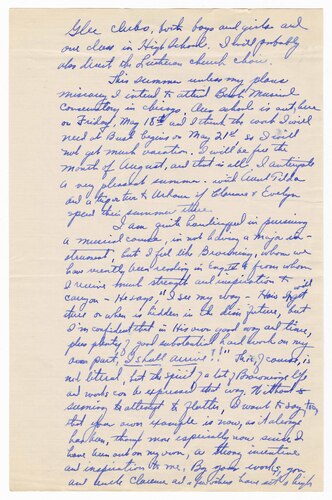 Glee clubs, both boys and girls and
one class in High School. I will probably
also direct the Lutheran church choir.
This summer unless my plans
miscarry I intend to attend Bush Musical
Conservatory in Chicago. Our school is out here
on Friday, May 18th and I think the work I will
need at Bush begins on May 21st so I will
not get much vacation. I will be free the
month of August, and that is all. I anticipate
a very pleasant summer with Aunt Tilda
and a trip or two to Urbana if Clarence & Evelyn
spend their summer there.
I am quite handicapped in pursuing
a musical course, in not having a major in-
strument, but I feel like Browning, whom we
have recently been reading in Eng. IV & from whom
I receive much strength and inspiration to
carry on - He says, "I see my way -
or when is hidden in the dim future, but
I'm confident that in His own good way and time,
plus plenty of good substantial hard work on my
own part, I shall arrive!!" This, of course, is
not literal, but the spirit of a lot of Browning's life
and works can be expressed that way. Without
seeming to attempt to flatter, I want to say too
that your own example is now, as it always
has been, though more especially now since I
have been out on my own, a strong incentive
and inspiration to me. By your works, you
and Uncle Clarence and have set a high